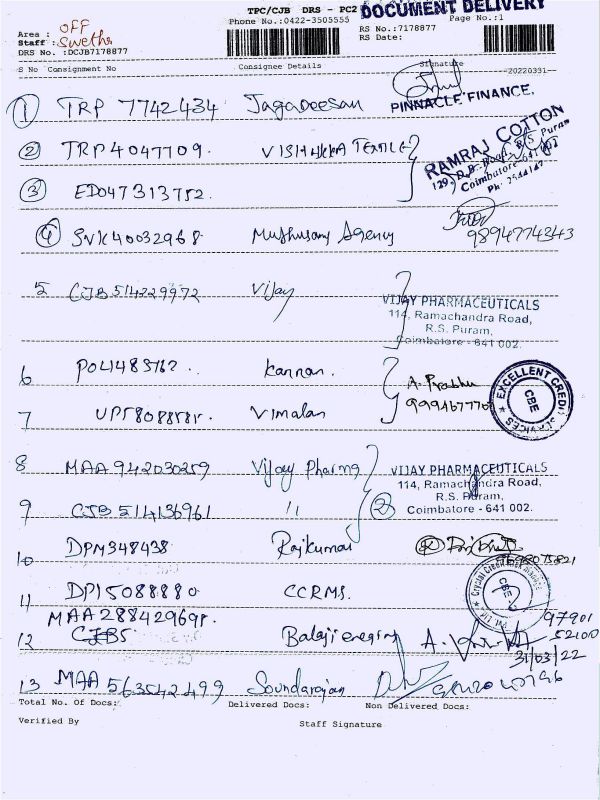 TPC/CJB DRS - PC2 DOCUMENT DELIVERY
Phone No.:0422-3505555 Page No.:1
Area : OFF RS No.:7178877
Staff : Swetha RS Date:
DRS No. :DCJB7178877
S No Consignment No Consignee Details Signature
20220331
1 TRP 7742434 Jagadeesan
PINNACLE FINANCE.
2 TRP4047709. VISHAKKA TEXTILE
RAMRAJ COTTON
129, D.B. Road, R.S Puram
Coimbatore-641 002
Ph: 2544147
3 ED047313752.
4 SVK40032968 Muthusamy Agency 9894774343
5 CJB514229972 Vijay
VIJAY PHARMACEUTICALS
114, Ramachandra Road,
R.S. Puram,
Coimbatore - 641 002.
6 POL1485762.. Kannan. A. Prabhu
EXCELLENT CREDIT SERVICES
CBE
7 UPS8088585. Vimalan
8 MAA942030259 Vijay Pharma
VIJAY PHARMACEUTICALS
114, Ramachandra Road,
R.S. Puram,
Coimbatore - 641 002.
9 CJB514136961 " 2
10 DPM348438 Rajkumar
11 DPI5088880 CCRMS.
CBE
MAA288429698. 97901
12 CJB5 Balaji A. 52100
31/03/22
13 MAA 563542499 Soundarajan
Total No. Of Docs: Delivered Docs: Non Delivered Docs:
Verified By Staff Signature